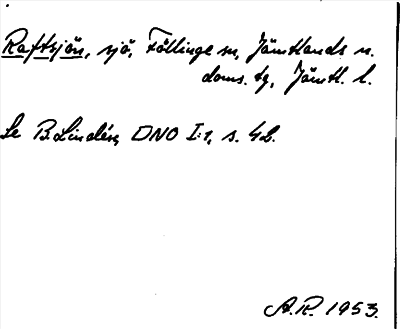 Raftsjön, sjö, Föllinge sn, Jämtlands n.
doms. tg, Jämtl. l.
Se B. Lindén, DNO I:1, s. 42.
A.R. 1953.